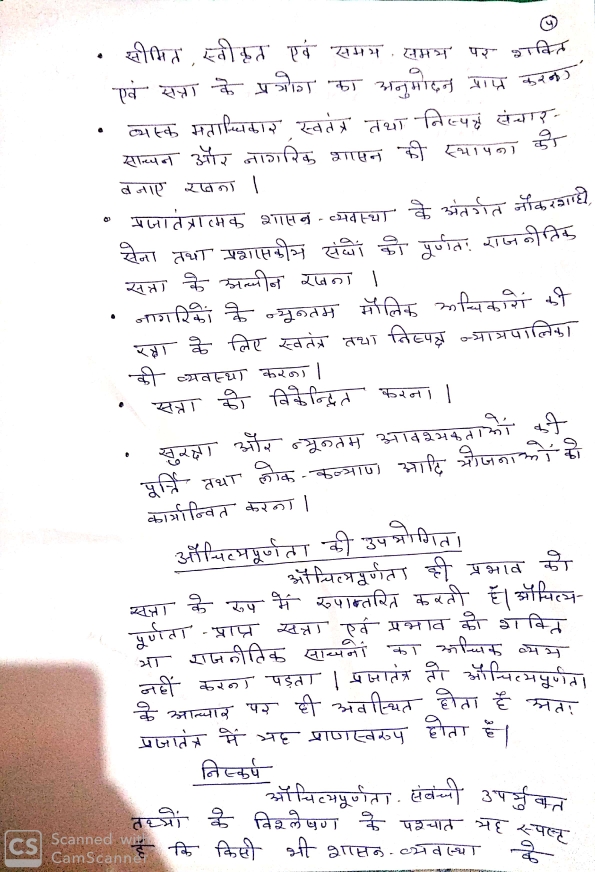 ५
• सीमित, स्वीकृत एवं समय-समय पर शक्ति
एवं सत्ता के प्रयोग का अनुमोदन प्राप्त करना।
• व्यस्क मताधिकार, स्वतंत्र तथा निष्पक्ष संचार-
साधन और नागरिक शासन की स्थापना को
बनाए रखना।
• प्रजातंत्रात्मक शासन-व्यवस्था के अंतर्गत नौकरशाही,
सेना तथा प्रशासकीय संघों को पूर्णतः राजनीतिक
सत्ता के अधीन रखना।
• नागरिकों के न्यूनतम मौलिक अधिकारों की
रक्षा के लिए स्वतंत्र तथा निष्पक्ष न्यायपालिका
की व्यवस्था करना।
• सत्ता को विकेन्द्रित करना।
• सुरक्षा और न्यूनतम आवश्यकताओं की
पूर्ति तथा लोक-कल्याण आदि योजनाओं को
कार्यान्वित करना।
औचित्यपूर्णता की उपयोगिता
औचित्यपूर्णता ही प्रभाव को
सत्ता के रूप में रूपान्तरित करती है। औचित्य-
पूर्णता-प्राप्त सत्ता एवं प्रभाव को शक्ति
या राजनीतिक साधनों का अधिक व्यय
नहीं करना पड़ता। प्रजातंत्र तो औचित्यपूर्णता
के आधार पर ही अवस्थित होता है अतः
प्रजातंत्र में यह प्राणस्वरूप होता है।
निष्कर्ष
औचित्यपूर्णता-संबंधी उपर्युक्त
तथ्यों के विश्लेषण के पश्चात यह स्पष्ट
है कि किसी भी शासन-व्यवस्था के
CS Scanned with
CamScanner